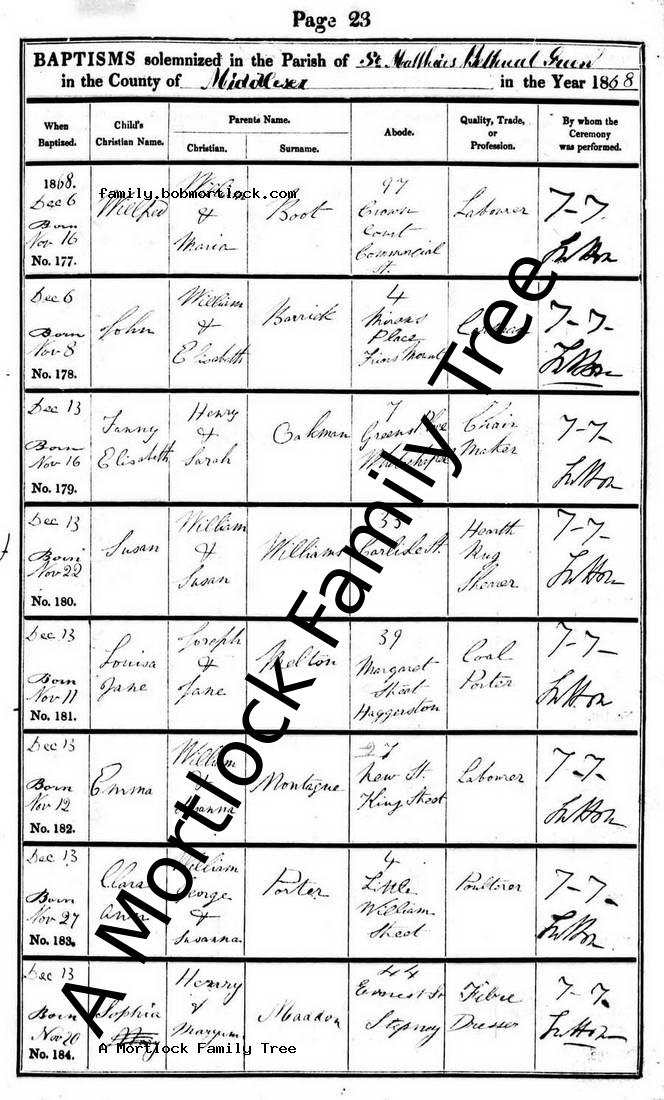 Page 23
BAPTISMS solemnized in the Parish of St. Matthias Bethnal Green
in the County of Middlesex in the Year 1868
When Baptized. Child's Christian Name. Parents Name. Christian. Surname. Abode. Quality, Trade, or Profession. By whom the Ceremony was performed.
1868.
Dec 6
Born
Nov 16
No. 177.
Wilfred
&
Maria
Boot
97
Crown
Court
Commercial
St.
Labourer
family.bobmortlock.com
Dec 6
Born
Nov 8
No. 178.
John
William
&
Elisabeth
Barrick
4
Place
Friars Mount
Dec 13
Born
Nov 16
No. 179.
Fanny
Elisabeth
Henry
&
Sarah
Oakman
7
Greens Place
Chair
Maker
Dec 13
Born
Nov 22
No. 180.
Susan
William
&
Susan
Williams
33
Carlisle St.
Hearth
Rug
Shearer
Dec 13
Born
Nov 11
No. 181.
Louisa
Jane
Joseph
&
Jane
Welton
39
Margaret
Street
Haggerston
Coal
Porter
Dec 13
Born
Nov 12
No. 182.
Emma
William
&
Montague
27
New St.
King Street
Labourer
Dec 13
Born
Nov 27
No. 183.
Clara
Ann
William
George
&
Susanna
Porter
4
Little
William
Street
Poulterer
Dec 13
Born
Nov 20
No. 184.
Sophia
Henry
&
Maryann
Maddon
44
Ernest St
Stepney
Fibre
Dresser
A Mortlock Family Tree
A Mortlock Family Tree